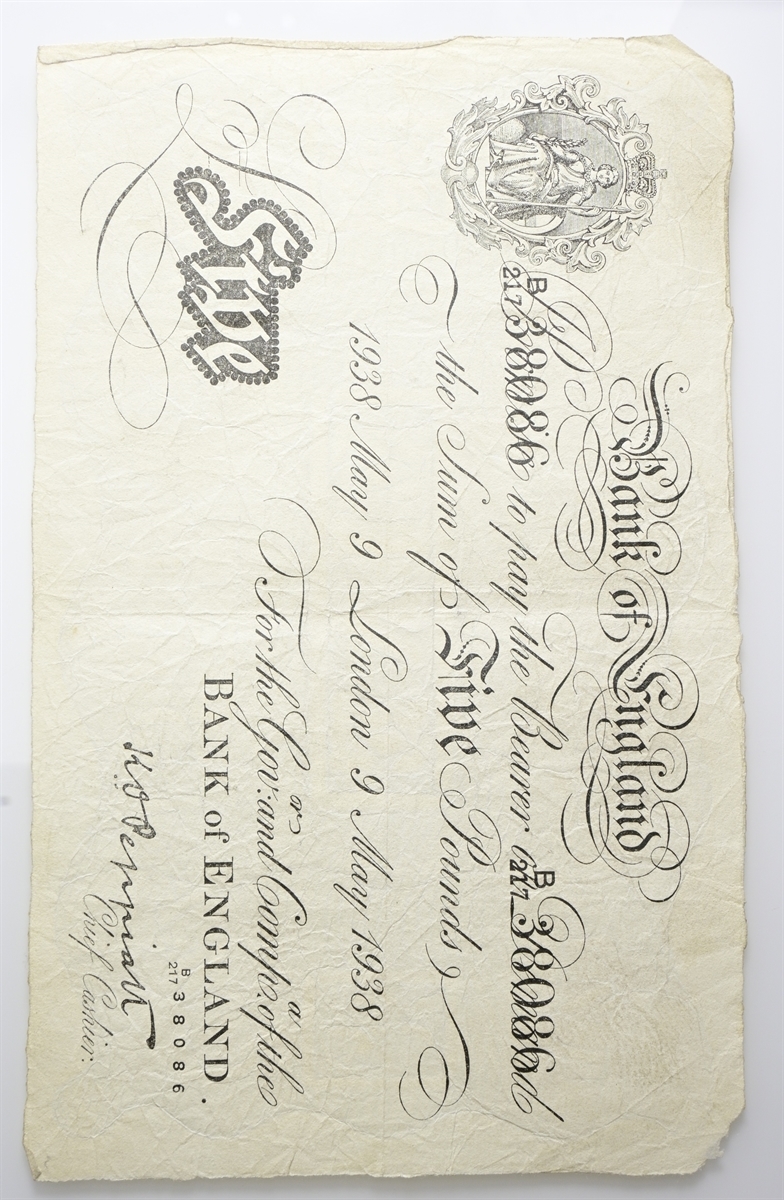 Bank of England
B 217 38086 to pay the Bearer on B 217 38086 d
the Sum of Five Pounds
1938 May 9 London 9 May 1938
For the Gov.r and Comp.a of the
BANK of ENGLAND.
£ Five
K O Peppiatt
B 217 38086
Chief Cashier.